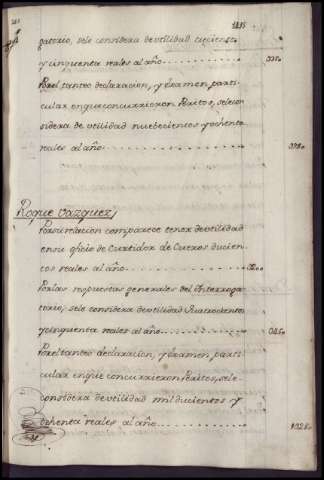 gatorio, sele considera de utilidad Ducientos
y cinquenta reales al año
Porel tanteo declaracion, y exâmen, parti-
cular enque concurrieron Peritos, sele con-
sidera de utilidad nuebecientos y ochenta
reales al año
Roque Vazquez
Porsu relacion comparece tener de utilidad
ensu oficio de Curtidor de Cueros ducien-
tos reales al año 0200
Porlas respuestas generales del Interroga-
torio, sele considera de utilidad Quatrocientos
y cinquenta reales al año 0450
Porel tanteo declaracion, y exâmen parti-
cular enque concurrieron Peritos, sele
considera de utilidad mil ducientos y
ochenta reales al año 1028